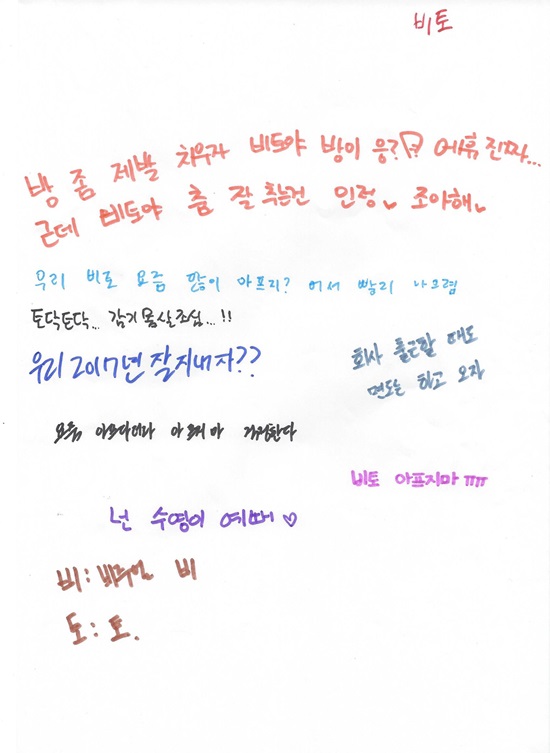 비토
방 좀 제발 치우자 비토야 방이 응?!? 에휴 진짜...
근데 비토야 춤 잘 추는건 인정♥ 조아해♥
우리 비토 요즘 많이 아프지? 어서 빨리 나으렴
토닥토닥... 감기 몸살 조심...!!
우리 2017년 잘 지내자??
회사 출근할 때도
면도는 하고 오자
요즘 아프지마
비토 아프지마 ㅠㅠ
넌 수염이 예뻐♡
비: 비주얼 비
토: 토.